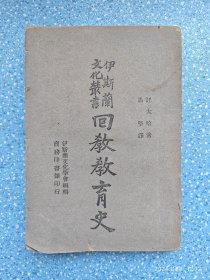 託太哈著
馬堅譯
伊斯蘭
文化叢書
回教教育史
伊斯蘭文化學會編輯
商務印書館印行